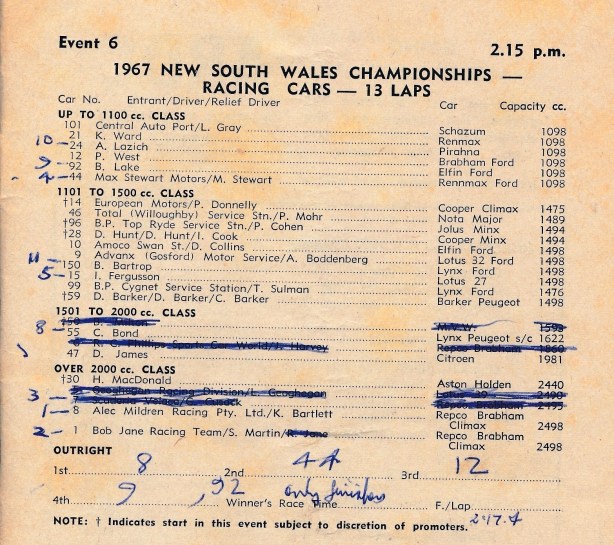 Event 6 2.15 p.m.
1967 NEW SOUTH WALES CHAMPIONSHIPS —
RACING CARS — 13 LAPS
Car No. Entrant/Driver/Relief Driver Car Capacity cc.
UP TO 1100 cc. CLASS
101 Central Auto Port/L. Gray Schazum 1098
21 K. Ward Renmax 1098
10 - 24 A. Lazich Pirahna 1098
12 P. West Brabham Ford 1098
9 - 92 B. Lake Elfin Ford 1098
4 - 44 Max Stewart Motors/M. Stewart Rennmax Ford 1098
1101 TO 1500 cc. CLASS
†14 European Motors/P. Donnelly Cooper Climax 1475
46 Total (Willoughby) Service Stn./P. Mohr Nota Major 1489
†96 B.P. Top Ryde Service Stn./P. Cohen Jolus Minx 1494
†28 D. Hunt/D. Hunt/I. Cook Cooper Minx 1494
10 Amoco Swan St./D. Collins Elfin Ford 1498
11 - 9 Advanx (Gosford) Motor Service/A. Boddenberg Lotus 32 Ford 1498
150 B. Bartrop Lynx Ford 1498
5 - 15 I. Fergusson Lotus 27 1498
99 B.P. Cygnet Service Station/T. Sulman Lynx Ford 1476
†59 D. Barker/D. Barker/C. Barker Barker Peugeot 1498
1501 TO 2000 cc. CLASS
†50 M.W. 1598
8 - 55 C. Bond Lynx Peugeot s/c 1622
R. C. Phillips Sports Car World/J. Harvey Repco Brabham
47 D. James Citroen 1981
OVER 2000 cc. CLASS
†30 H. MacDonald Aston Holden 2440
Geoghegan Racing Division/L. Geoghegan Lotus 39
3 - Cusack Repco Brabham
1 - 8 Alec Mildren Racing Pty. Ltd./K. Bartlett Repco Brabham
Climax 2498
2 - 1 Bob Jane Racing Team/S. Martin/R. Jane Repco Brabham
Climax 2498
OUTRIGHT
1st 8 2nd 44 3rd 12
4th 9, 92 only finishers Winner's Race Time F./Lap 2'17.4
NOTE: † Indicates start in this event subject to discretion of promoters.